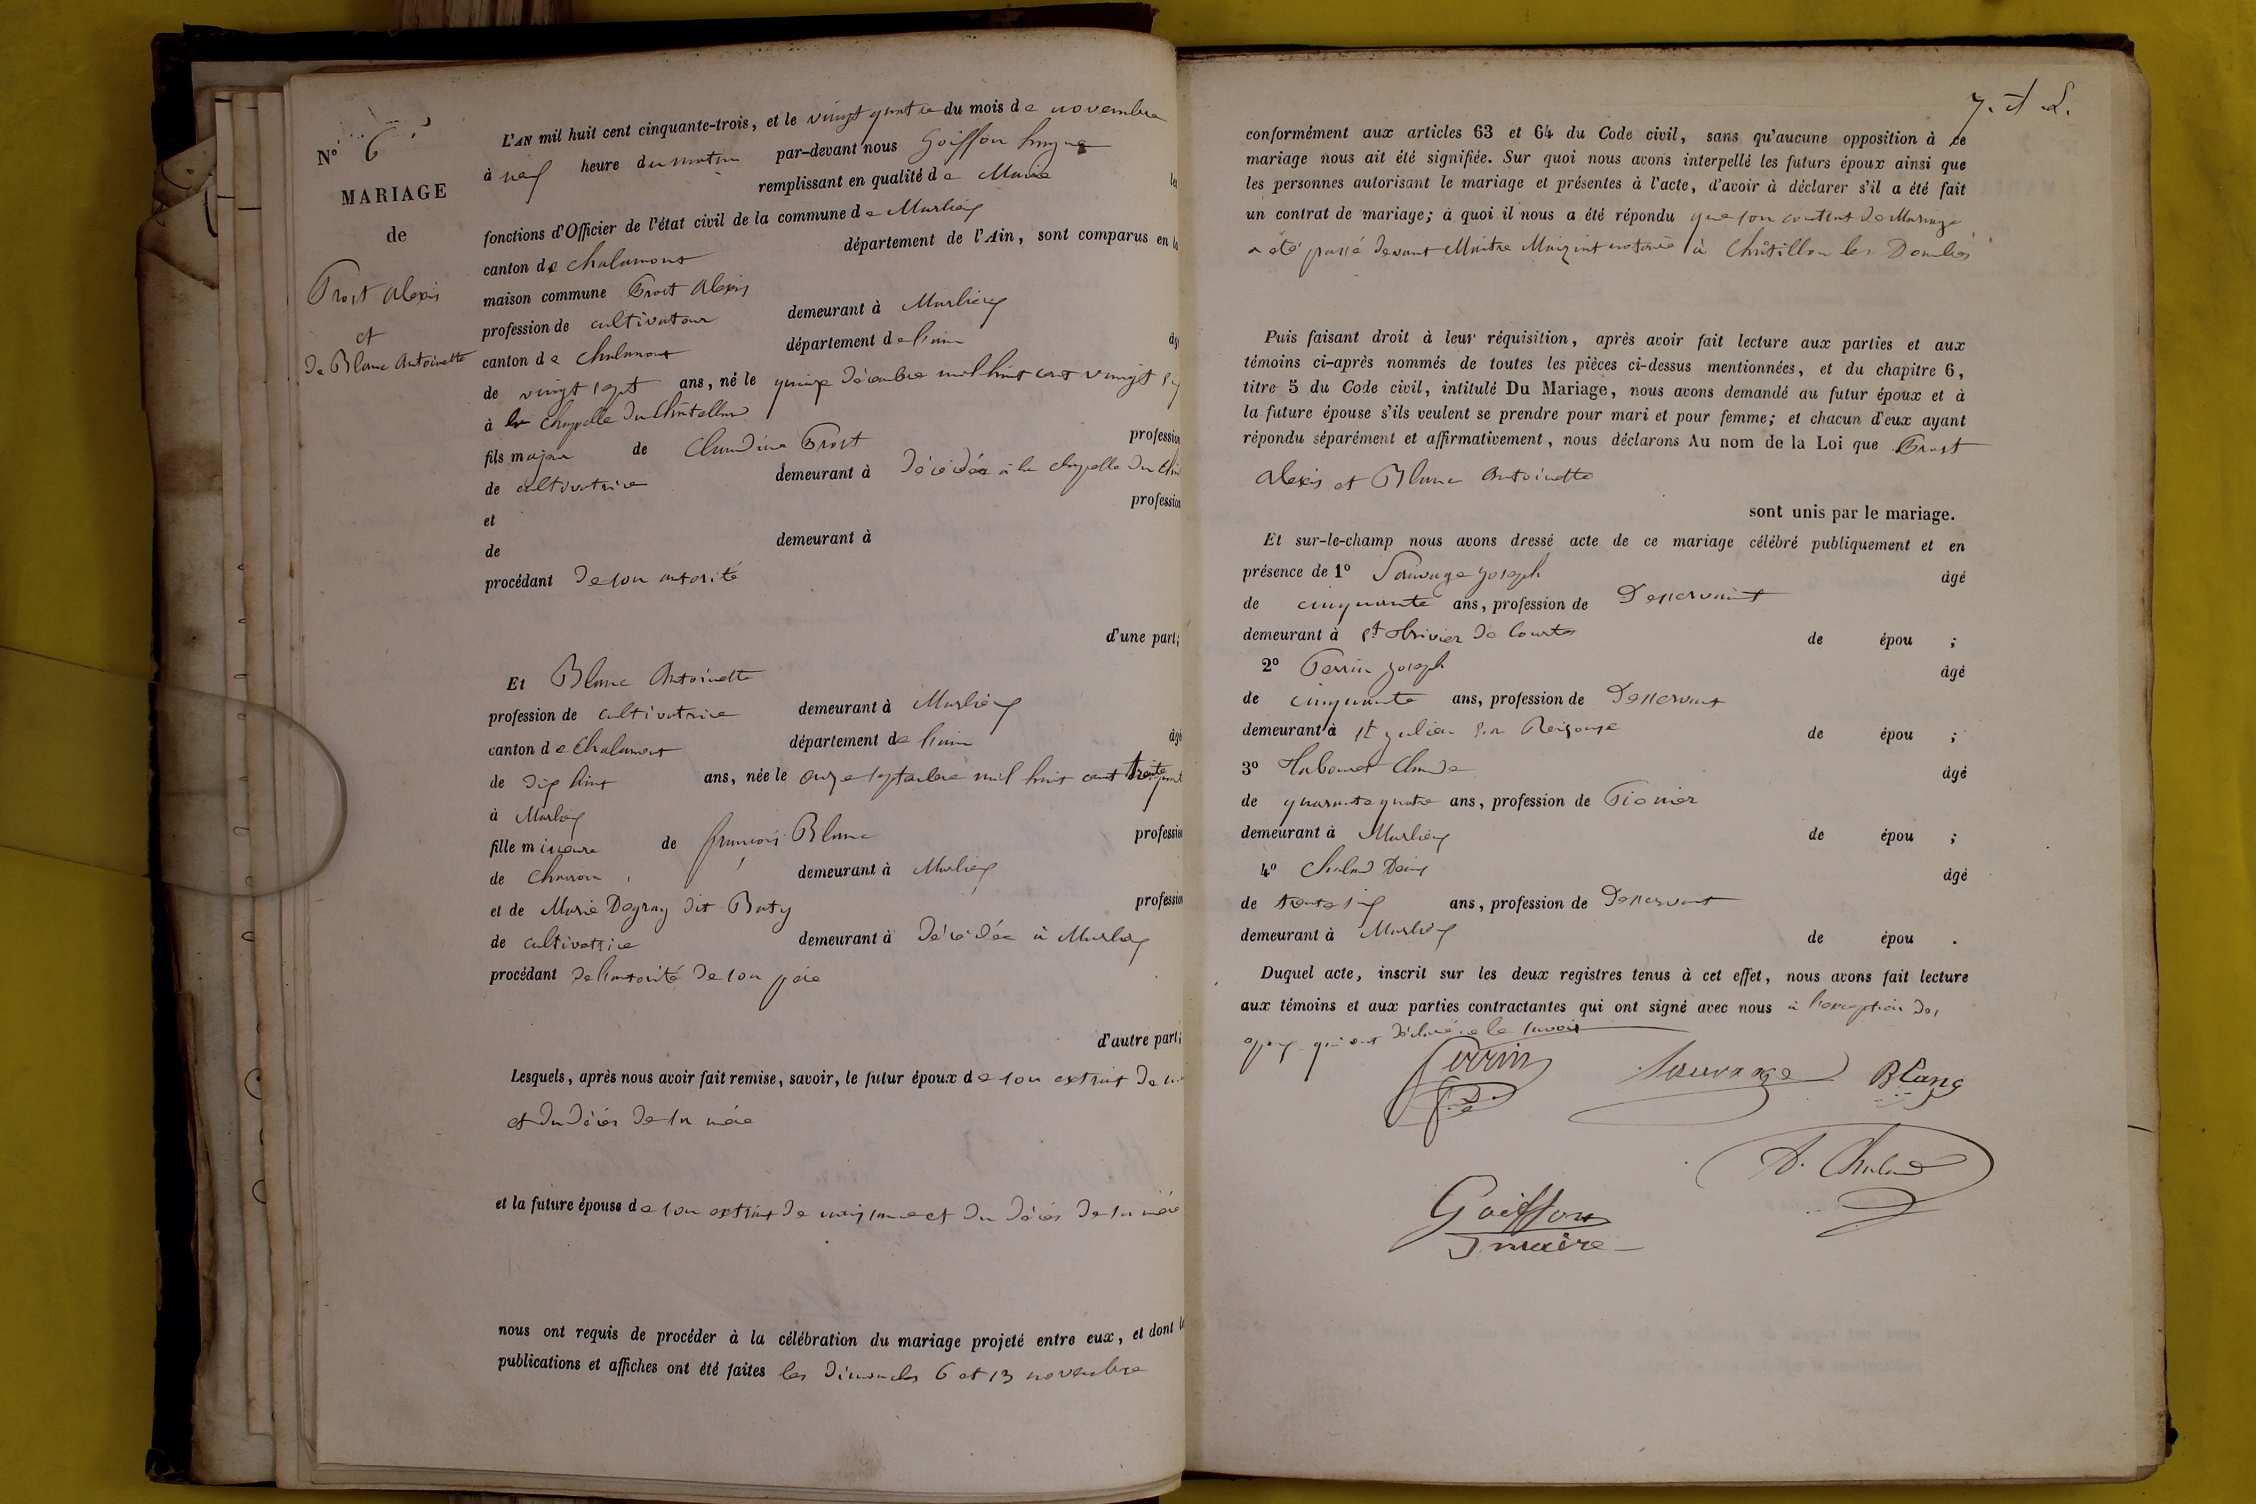 N° 6
MARIAGE
de
Prost Alexis
et
de Blanc Antoinette
L'AN mil huit cent cinquante-trois, et le vingt quatre du mois de novembre
à neuf heure du matin par-devant nous Goiffon
remplissant en qualité de Maire les
fonctions d'Officier de l'état civil de la commune de Marlieux
canton de Chalamont département de l'Ain, sont comparus en la
maison commune Prost Alexis
profession de cultivateur demeurant à Marlieux
canton de Chalamont département de l'ain âgé
de vingt sept ans, né le quinze décembre mil huit cent vingt
à la Chapelle du Châtellard
fils majeur de Claudine Prost profession
de cultivatrice demeurant à décédée à la chapelle du
et profession
de demeurant à
procédant de son autorité
d'une part;
Et Blanc Antoinette
profession de cultivatrice demeurant à Marlieux
canton de Chalamont département de l'ain âgé
de dix huit ans, née le onze septembre mil huit cent trente
à Marlieux
fille mineure de françois Blanc profession
de Charron demeurant à Marlieux
et de Marie Degray dit Baty profession
de cultivatrice demeurant à décédée à Marlieux
procédant de l'autorité de son père
d'autre part;
Lesquels, après nous avoir fait remise, savoir, le futur époux de son extrait de
et du décès de sa mère
et la future épouse de son extrait de naissance et du décès de sa mère
nous ont requis de procéder à la célébration du mariage projeté entre eux, et dont
publications et affiches ont été faites les dimanches 6 et 13 novembre
conformément aux articles 63 et 64 du Code civil, sans qu'aucune opposition à ce
mariage nous ait été signifiée. Sur quoi nous avons interpellé les futurs époux ainsi que
les personnes autorisant le mariage et présentes à l'acte, d'avoir à déclarer s'il a été fait
un contrat de mariage; à quoi il nous a été répondu que son contrat de Mariage
a été passé devant Maitre notaire à Châtillon les Dombes
Puis faisant droit à leur réquisition, après avoir fait lecture aux parties et aux
témoins ci-après nommés de toutes les pièces ci-dessus mentionnées, et du chapitre 6,
titre 5 du Code civil, intitulé Du Mariage, nous avons demandé au futur époux et à
la future épouse s'ils veulent se prendre pour mari et pour femme; et chacun d'eux ayant
répondu séparément et affirmativement, nous déclarons Au nom de la Loi que Prost
Alexis et Blanc Antoinette
sont unis par le mariage.
Et sur-le-champ nous avons dressé acte de ce mariage célébré publiquement et en
présence de 1° Sauvage Joseph âgé
de cinquante ans, profession de Desservant
demeurant à St trivier de Courtes de épou ;
2° Perrin Joseph âgé
de cinquante ans, profession de Desservant
demeurant à St julien sur Reissouze de épou ;
3° Claude âgé
de quarante quatre ans, profession de
demeurant à Marlieux de épou ;
4° Chaland Denis âgé
de trente six ans, profession de Desservant
demeurant à Marlieux de épou .
Duquel acte, inscrit sur les deux registres tenus à cet effet, nous avons fait lecture
aux témoins et aux parties contractantes qui ont signé avec nous à l'exception des
époux qui ont déclaré ne le savoir
Perrin Sauvage Blanc
D. Chaland
Goiffon
maire